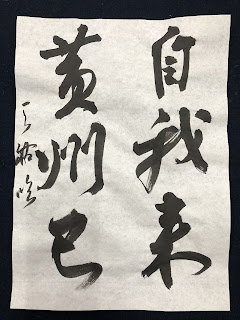 自我来
黄州已